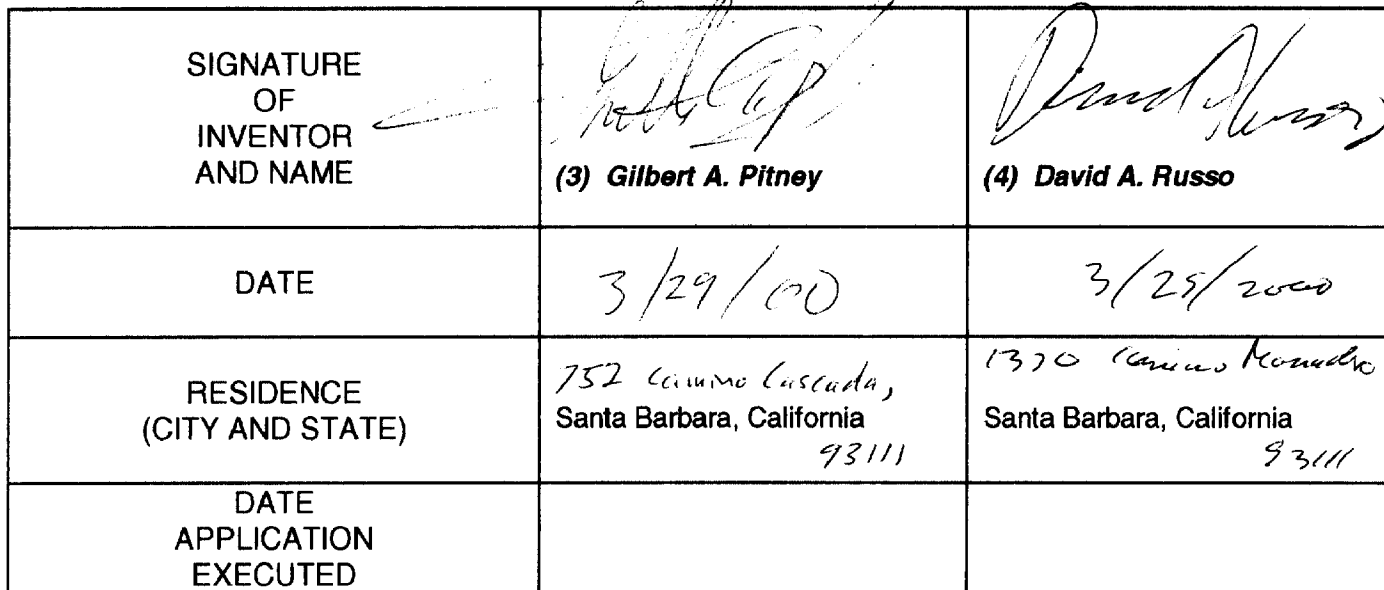 SIGNATURE
OF
INVENTOR
AND NAME
(3) Gilbert A. Pitney
(4) David A. Russo
DATE
3/29/00
3/29/2000
RESIDENCE
(CITY AND STATE)
752 Camino Cascada,
Santa Barbara, California
93111
Camino
Santa Barbara, California
93111
DATE
APPLICATION
EXECUTED